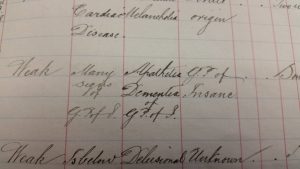 Cardiac Melancholia origin
Disease.
Weak Many Apathetic G.P. of
signs Dementia Insane
of of
G.P. of I. G.P. of I.
Weak Is below Delusional Unknown